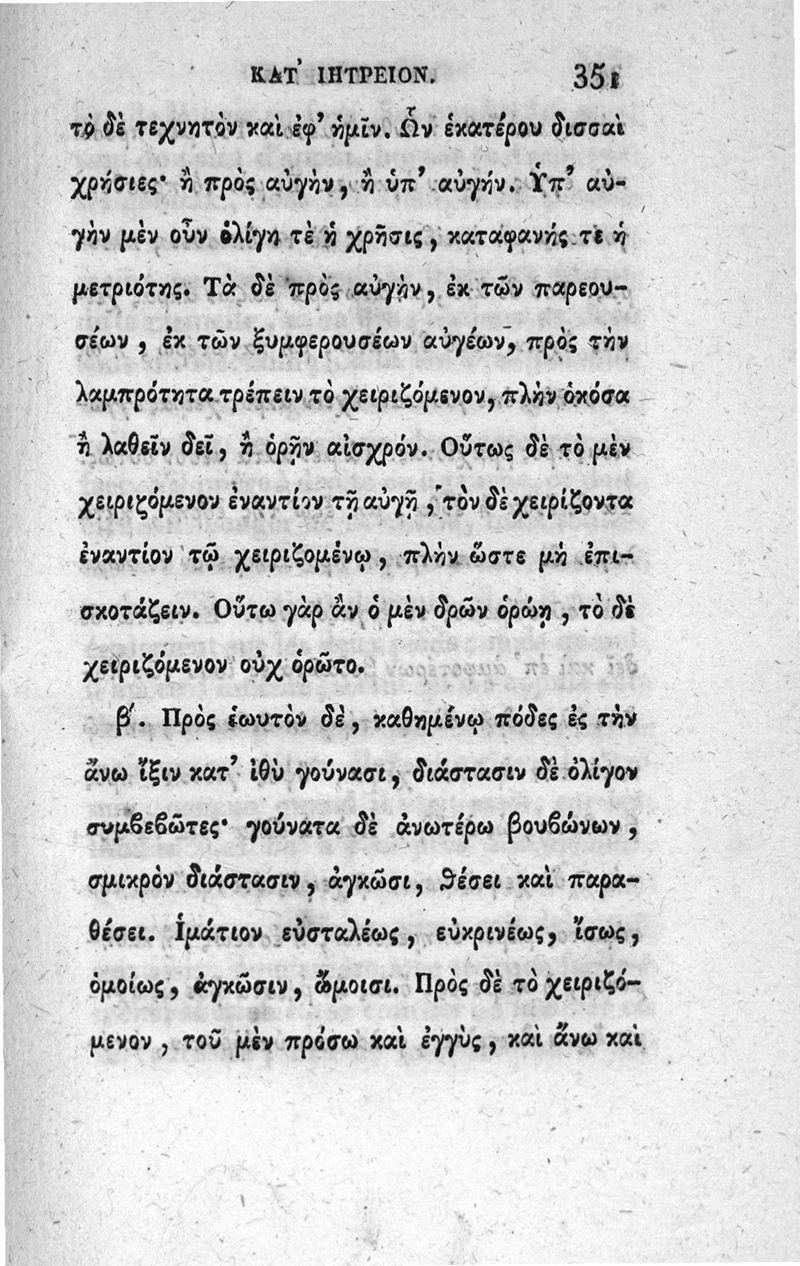 ΚΑΤ᾽ ΙΗΤΡΕΙΟΝ. 351
τὸ δὲ τεχνητὸν καὶ ἐφ᾽ ἡμῖν. Ὧν ἑκατέρου δισσαὶ
χρήσιες· ἢ πρὸς αὐγὴν, ἢ ὑπ᾽ αὐγήν. Ὑπ᾽ αὐ-
γὴν μὲν οὖν ὀλίγη τὲ ἡ χρῆσις, καταφανής τε ἡ
μετριότης. Τὰ δὲ πρὸς αὐγὴν, ἐκ τῶν παρεου-
σέων, ἐκ τῶν ξυμφερουσέων αὐγέων, πρὸς τὴν
λαμπρότητα τρέπειν τὸ χειριζόμενον, πλὴν ὁκόσα
ἢ λαθεῖν δεῖ, ἢ ὁρῇν αἰσχρόν. Οὕτως δὲ τὸ μὲν
χειριζόμενον ἐναντίον τῇ αὐγῇ, τὸν δὲ χειρίζοντα
ἐναντίον τῷ χειριζομένῳ, πλὴν ὥστε μὴ ἐπι-
σκοτάζειν. Οὕτω γὰρ ἂν ὁ μὲν δρῶν ὁρώῃ, τὸ δὲ
χειριζόμενον οὐχ ὁρῶτο.
β΄. Πρὸς ἑωυτὸν δὲ, καθημένῳ πόδες ἐς τὴν
ἄνω ἴξιν κατ᾽ ἰθὺ γούνασι, διάστασιν δὲ ὀλίγον
συμϐεϐῶτες· γούνατα δὲ ἀνωτέρω βουϐώνων,
σμικρὸν διάστασιν, ἀγκῶσι, ϑέσει καὶ παρα-
θέσει. Ἱμάτιον εὐσταλέως, εὐκρινέως, ἴσως,
ὁμοίως, ἀγκῶσιν, ὤμοισι. Πρὸς δὲ τὸ χειριζό-
μενον, τοῦ μὲν πρόσω καὶ ἐγγὺς, καὶ ἄνω καὶ